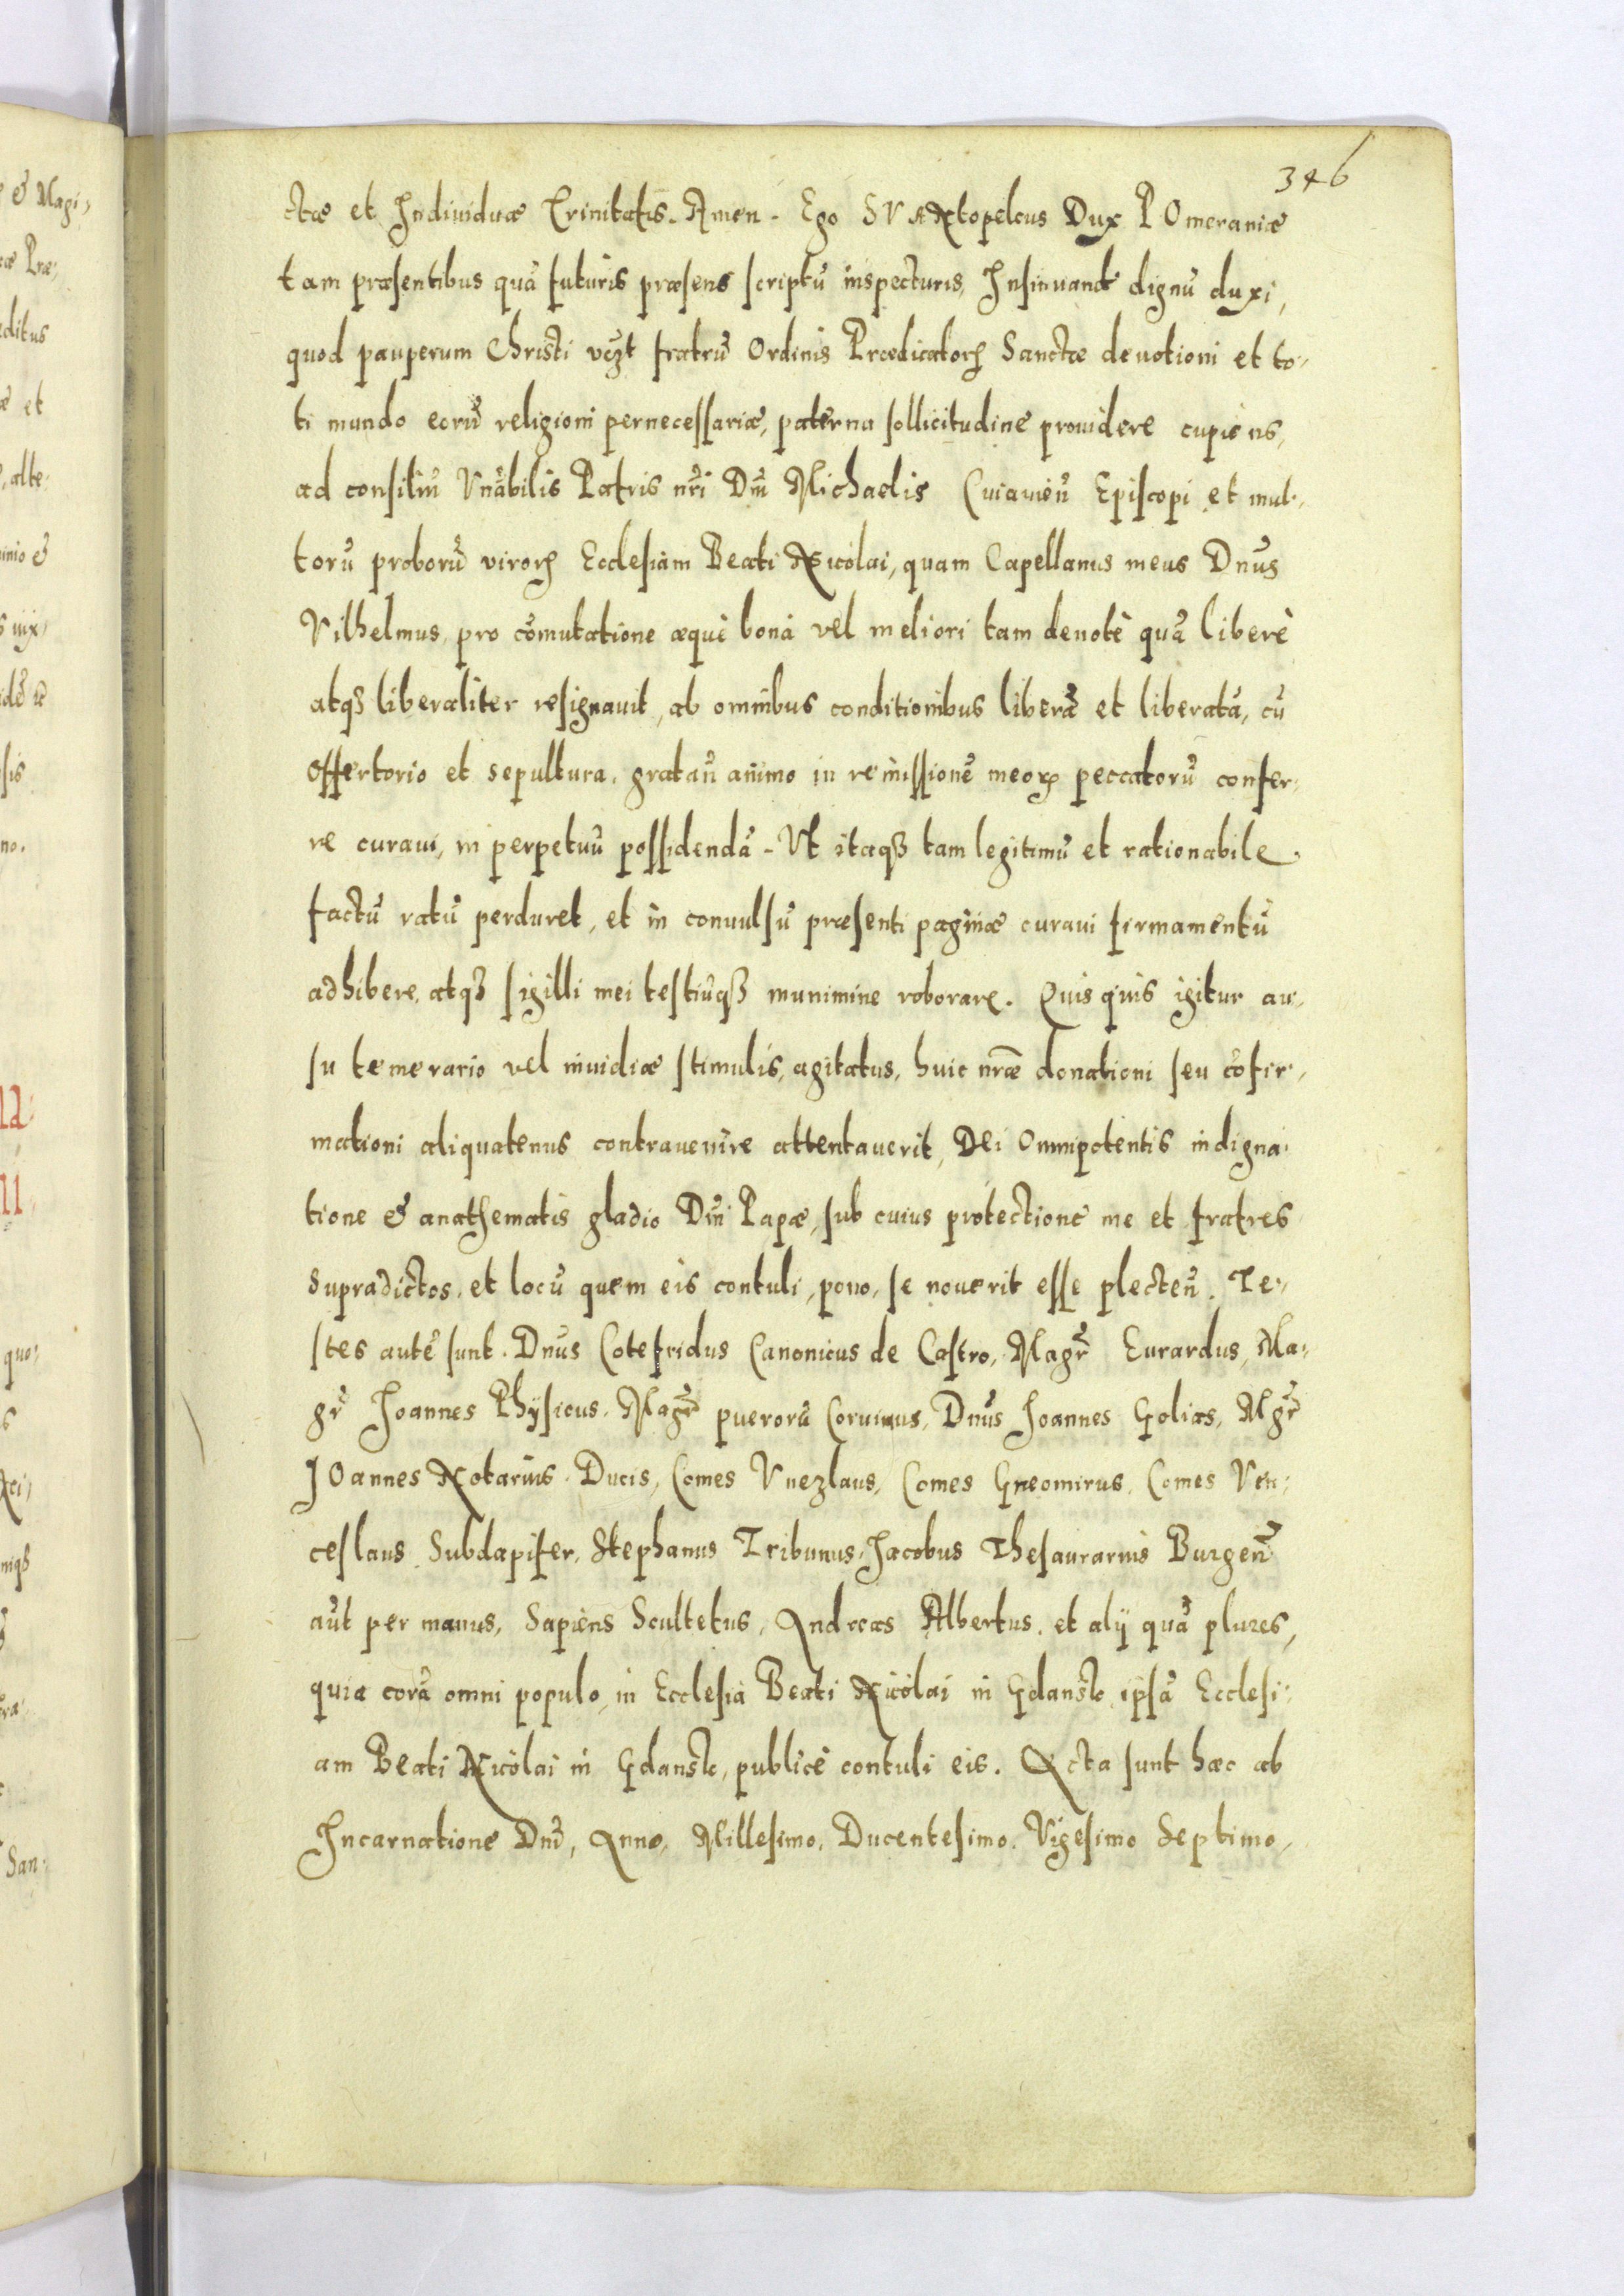 346
ctæ et Individuæ Trinitatis. Amen. Ego SVANtopelcus Dux POmeraniæ
tam præsentibus quā futuris præsens scriptū inspecturis, Insinuand dignū duxi,
quod pauperum Christi vczt fratrū Ordinis Prædicatorꝝ Sanctæ deuotioni et to-
ti mundo eorū religioni pernecessariæ, paterna sollicitudine prouidere cupiens,
ad consiliū Vnābilis Patris nr̄i Dn̄i Michaelis Cuiauien̄ Episcopi et mul-
torū proborū virorꝝ Ecclesiam Beati Nicolai, quam Capellanus meus Dnūs
Vilhelmus, pro cōmutatione æquè bona vel meliori tam deuotè quā liberè
atqꝫ liberaliter resignauit, ab omnibus conditionibus liberā et liberatā, cū
offertorio et sepultura, grātan̄ animo in remissionē meorꝝ peccatorū confer-
re curaui, in perpetuū possidendā. Vt itaqꝫ tam legitimū et rationabile
factū ratū perduret, et in conuulsū præsenti paginæ curaui firmamentū
adhibere, atqꝫ sigilli mei testiūqꝫ munimine roborare. Quisquis igitur au-
su temerario vel inuidiæ stimulis, agitatus, huic nr̄æ donationi seu cōfir-
mationi aliquatenus contrauenire attentauerit, Dei Omnipotentis indigna-
tione & anathematis gladio Dn̄i Papæ, sub cuius protectione me et fratres
supradictos, et locū quem eis contuli, pono, se nouerit esse plecten̄. Te-
stes autē sunt. Dnūs Cotefridus Canonicus de Castro, Magr̄ Eurardus, Ma-
gr̄ Joannes Physicus, Magr̄ puerorū Coruinus, Dnūs Joannes Golias, Mgr̄
JOannes Notarius Ducis, Comes Vnezlaus, Comes Gneomirus, Comes Ven-
ceslaus Subdapifer, Stephanus Tribunus, Jacobus Thesaurarius Burgen̄
aūt per manus, Sapiens Scultetus, Andreas Albertus, et alÿ quā plures,
quia corā omni populo, in Ecclesia Beati Nicolai in Gdansk ipsā Ecclesi-
am Beati Nicolai in Gdansk, publicè contuli eis. Acta sunt hæc ab
Incarnatione Dn̄i, Anno, Millesimo, Ducentesimo, Vigesimo Septimo,